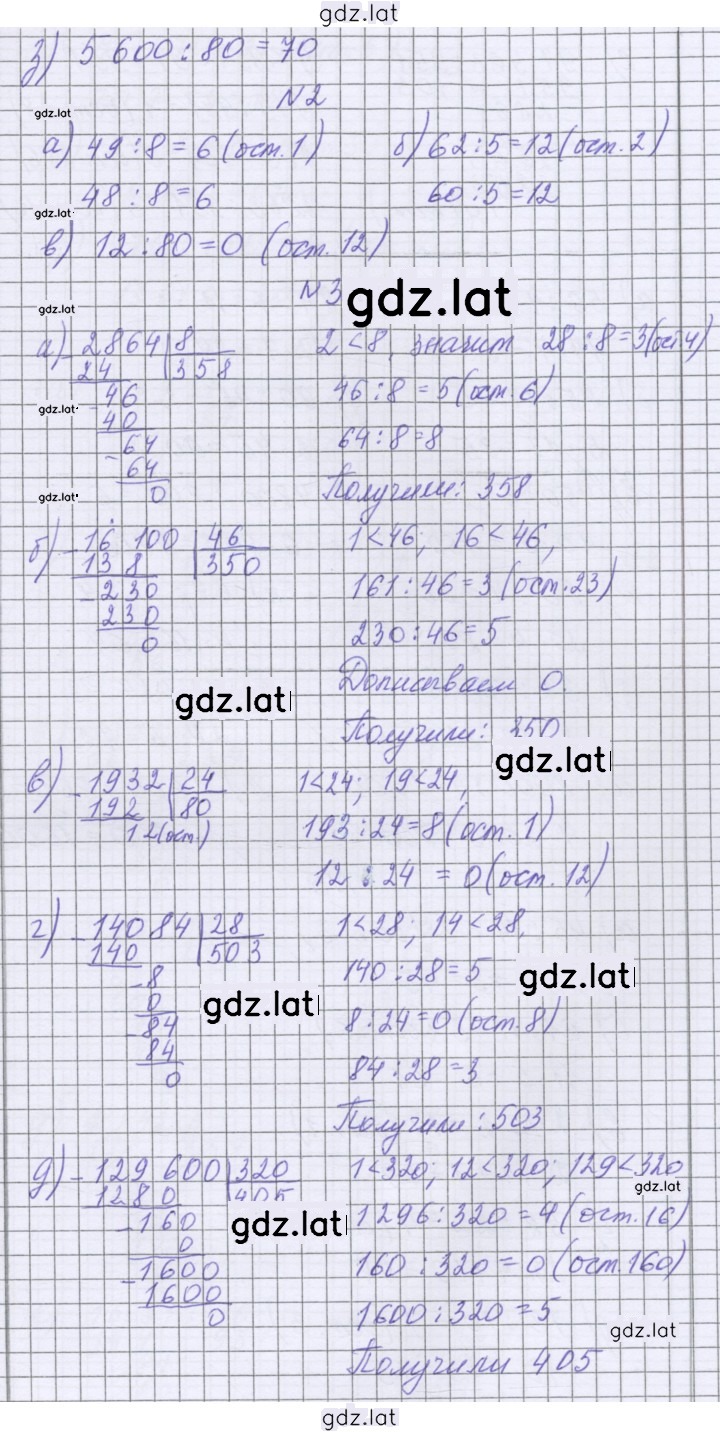 gdz.lat
з) 5 600 : 80 = 70
N2
gdz.lat
а) 49 : 8 = 6 (ост. 1) б) 62 : 5 = 12 (ост. 2)
48 : 8 = 6 60 : 5 = 12
gdz.lat
в) 12 : 80 = 0 (ост. 12)
N3 gdz.lat
gdz.lat
а) - 2864 | 8 2 < 8, значит 28 : 8 = 3 (ост 4)
24 | 358
- 46 46 : 8 = 5 (ост. 6)
gdz.lat
40
- 64 64 : 8 = 8
64
0 Получили: 358
gdz.lat
б) - 16 100 | 46 1 < 46; 16 < 46,
13 8 | 350
- 230 161 : 46 = 3 (ост. 23)
230
0 230 : 46 = 5
gdz.lat Дописываем 0.
Получили: 350
gdz.lat
в) - 1932 | 24 1 < 24; 19 < 24,
192 | 80
12 (ост) 193 : 24 = 8 (ост. 1)
12 : 24 = 0 (ост. 12)
г) - 140 84 | 28 1 < 28; 14 < 28,
140 | 503
- 8 140 : 28 = 5 gdz.lat
0 gdz.lat
- 84 8 : 24 = 0 (ост. 8)
84
0 84 : 28 = 3
Получили: 503
д) - 129 600 | 320 1 < 320; 12 < 320; 129 < 320
1280 | 405 gdz.lat
- 160 gdz.lat 1296 : 320 = 4 (ост. 16)
0
- 1600 160 : 320 = 0 (ост. 160)
1600
0 1600 : 320 = 5
gdz.lat
Получили 405
gdz.lat